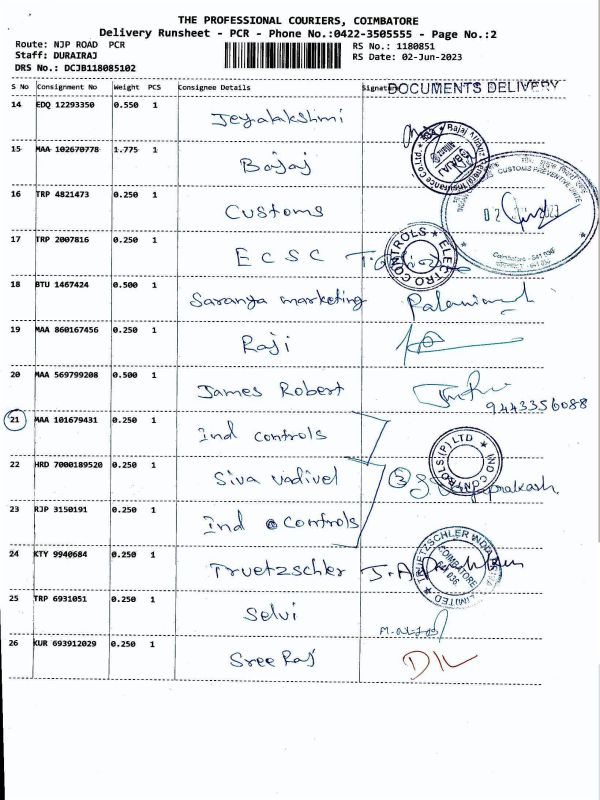 THE PROFESSIONAL COURIERS, COIMBATORE
Delivery Runsheet - PCR - Phone No.:0422-3505555 - Page No.:2
Route: NJP ROAD PCR RS No.: 1180851
Staff: DURAIRAJ RS Date: 02-Jun-2023
DRS No.: DCJB118085102
S No Consignment No Weight PCS Consignee Details Signat DOCUMENTS DELIVERY
14 EDQ 12293350 0.550 1 Jeyalakshmi
15 MAA 102670778 1.775 1 Bajaj
16 TRP 4821473 0.250 1 Customs
17 TRP 2007816 0.250 1 E C S C
ELECTRO CONTROLS
CUSTOMS PREVENTIVE
Coimbatore - 641
18 BTU 1467424 0.500 1 Saranya marketing
19 MAA 860167456 0.250 1 Raji
20 MAA 569799208 0.500 1 James Robert
9443356088
21 MAA 101679431 0.250 1 Ind controls
IND CONTROLS (P) LTD
22 HRD 7000189520 0.250 1 Siva vadivel 3
23 RJP 3150191 0.250 1 Ind controls
24 KTY 9940684 0.250 1 Truetzschler
TRUETZSCHLER INDIA LIMITED
COIMBATORE
641 036
25 TRP 6931051 0.250 1 Selvi
26 KUR 693912029 0.250 1 Sree Raj